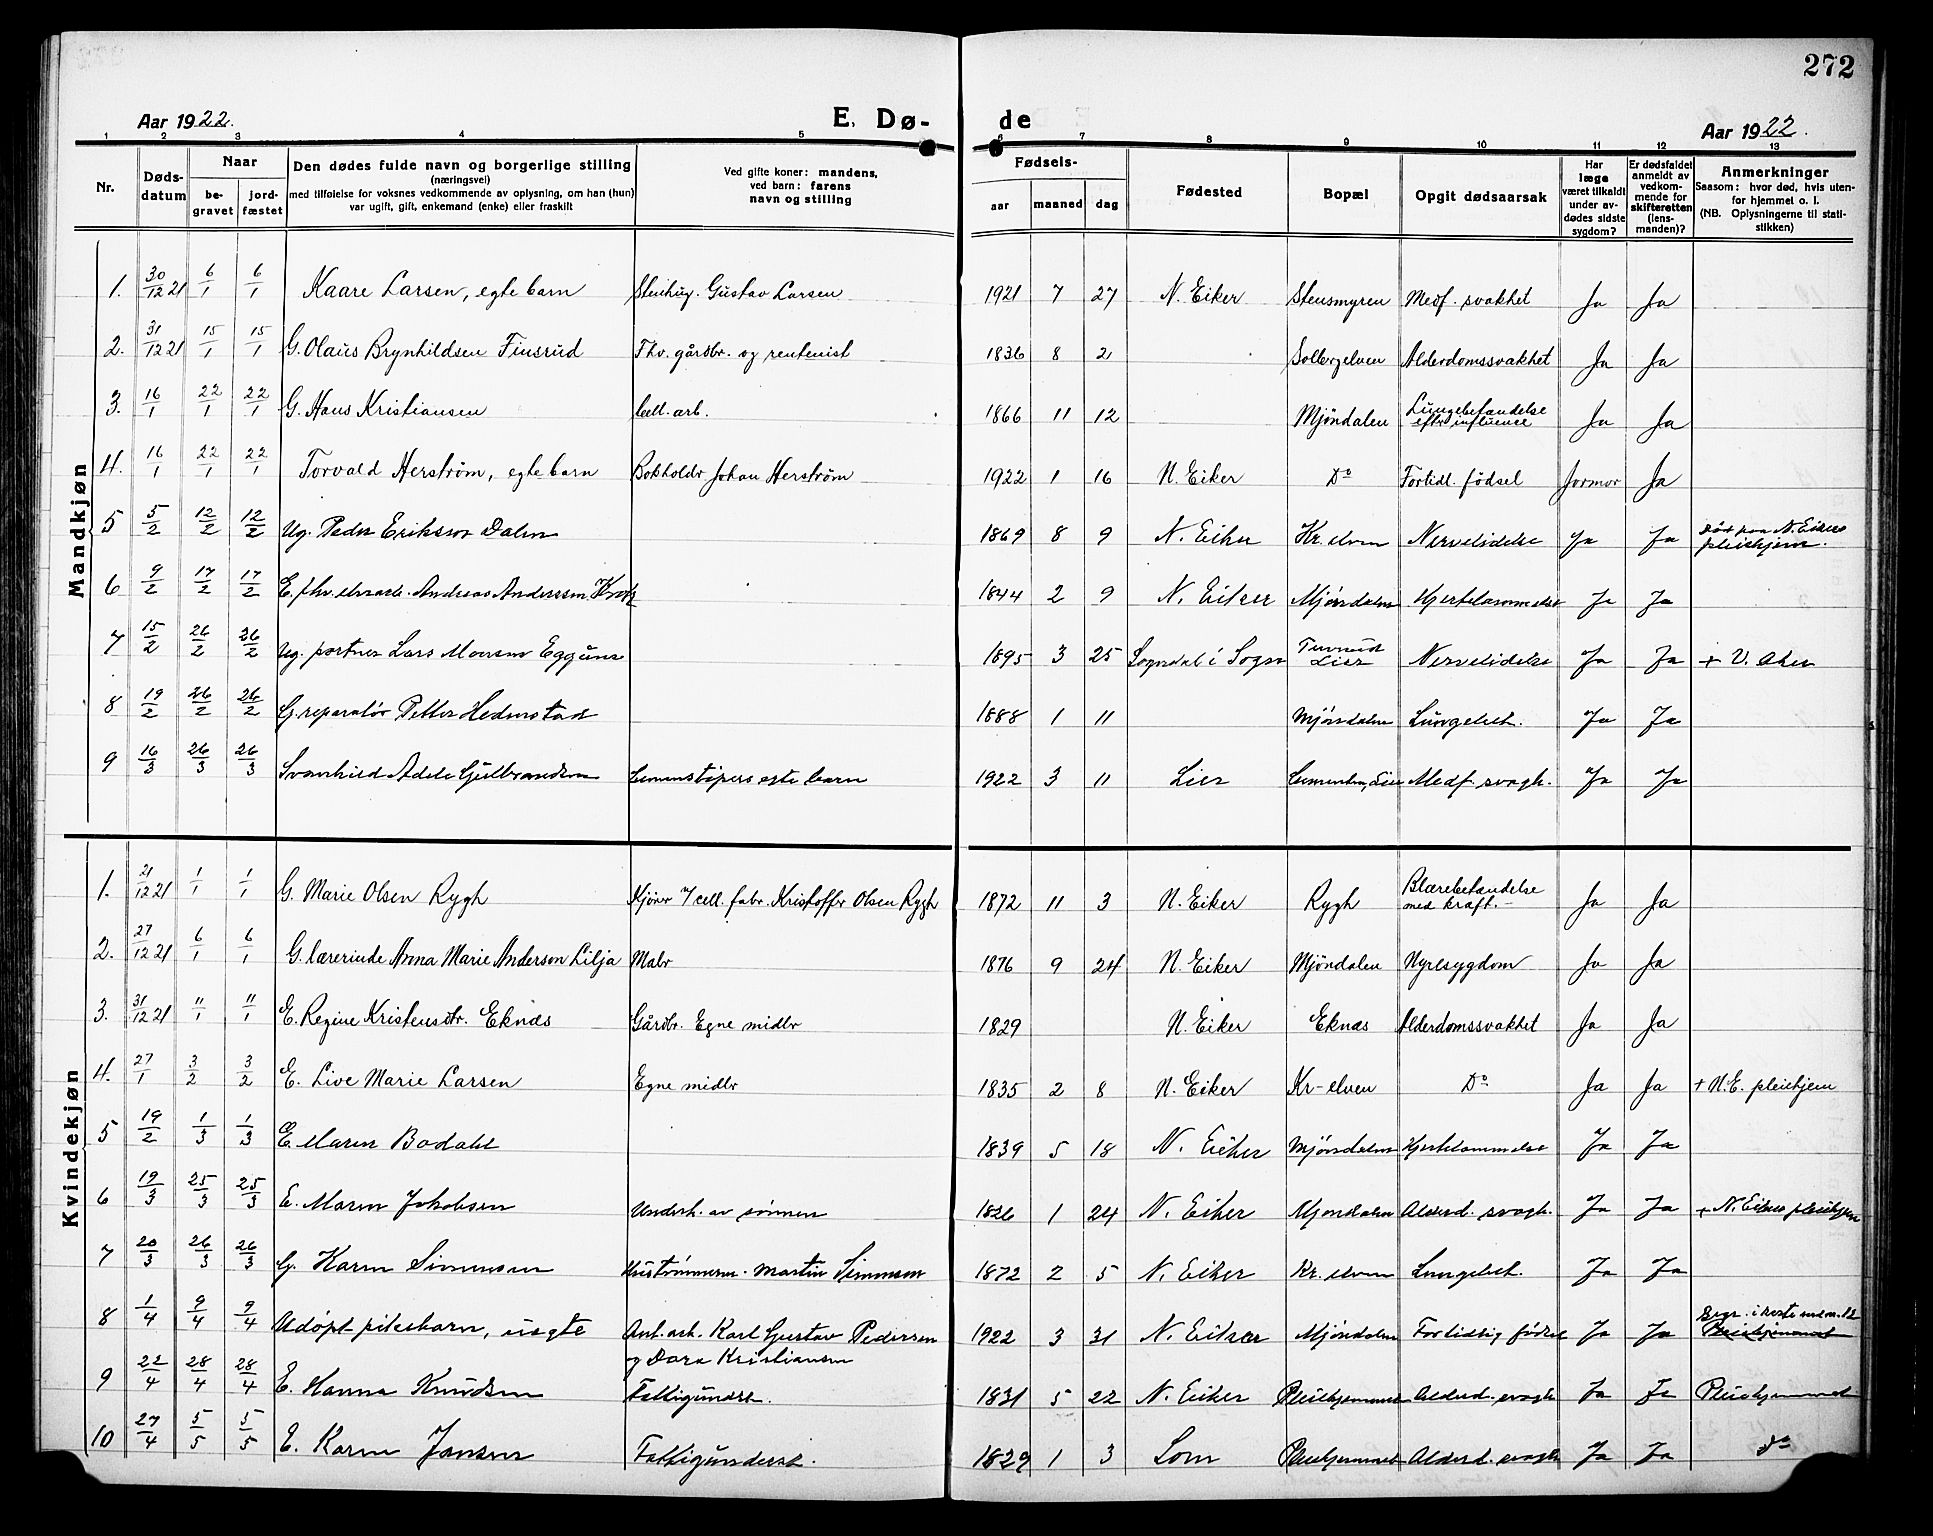 272
Aar 1922.
E. Dø-
de
Aar 1922.
1 2 3 4 5 6 7 8 9 10 11 12 13
Nr.
Døds-
datum
Naar
be-
gravet
jord-
fæstet
Den dødes fulde navn og borgerlige stilling
(næringsvei)
med tilføielse for voksnes vedkommende av oplysning, om han (hun)
var ugift, gift, enkemand (enke) eller fraskilt
Ved gifte koner: mandens,
ved barn: farens
navn og stilling
Fødsels-
aar maaned dag
Fødested
Bopæl
Opgit dødsaarsak
Har
læge
været tilkaldt
under av-
dødes sidste
sygdom?
Er dødsfaldet
anmeldt av
vedkom-
mende for
skifteretten
(lens-
manden)?
Anmerkninger
Saasom: hvor død, hvis uten-
for hjemmet o. l.
(NB. Oplysningerne til stati-
stikken)
Mandkjøn
1. 30/12 21 6/1 6/1 Kaare Larsen, egte barn Stenhug. Gustav Larsen 1921 7 27 N. Eiker Stensmyren Medf. svakhet Ja Ja
2. 31/12 21 15/1 15/1 G. Olaus Brynhildsen Finsrud Fhv. gårdbr. og rentenist 1836 8 2 Solbergelven Alderdomssvakhet Ja Ja
3. 16/1 22/1 22/1 G. Hans Kristiansen Cell. arb. 1866 11 12 Mjöndalen Lungebetændelse
efter influence Ja Ja
4. 16/1 22/1 22/1 Torvald Herström, egte barn Bokholder Johan Herström 1922 1 16 N. Eiker Do Fortidl. födsel Jormor Ja
5 5/2 12/2 12/2 Ug. Peder Eriksen Dalen 1869 8 9 N. Eiker Kr. elven Nervelidelse Ja Ja Död paa N. Eikers
pleiehjem.
6 9/2 17/2 17/2 E. fhv. Andreas Anderssen 1844 2 9 N. Eiker Mjöndalen Hjertelammelse Ja Ja
7 15/2 26/2 26/2 Ug. portner Lars Monsen Eggum 1895 3 25 Sogndal i Sogn Lier Nervelidelse Ja Ja + V. Aker
8 19/2 26/2 26/2 G. reparatör Petter Hedenstad 1888 1 11 Mjöndalen Lungebet. Ja Ja
9 16/3 26/3 26/3 Svanhild Adele Gulbrandsen egte barn 1922 3 11 Lier Lier Medf. svagh. Ja Ja
Kvindekjøn
1. 21/12 21 1/1 1/1 G. Marie Olsen Rygh Kjörer v/ cell. fabr. Kristoffer Olsen Rygh 1872 11 3 N. Eiker Rygh Blærebetændelse
med kræft. Ja Ja
2. 27/12 21 6/1 6/1 G. lærerinde Anna Marie Anderson Lilja Maler 1876 9 24 N. Eiker Mjöndalen Nyresygdom Ja Ja
3. 31/12 21 11/1 11/1 E. Regine Kristensdtr. Eknæs Gårdbr. Egne midler 1829 N. Eiker Eknæs Alderdomssvakhet Ja Ja
4. 27/1 3/2 3/2 E. Live Marie Larsen Egne midler 1835 2 8 N. Eiker Kr-elven Do Ja Ja + N.E. pleiehjem
5 19/2 1/3 1/3 E. Maren Bodahl 1839 5 18 N. Eiker Mjöndalen Hjertelammelse Ja Ja
6 19/3 25/3 25/3 E. Maren Jakobsen Underh. av sönnen 1826 1 24 N. Eiker Mjöndalen Alderd. svagh. Ja Ja + N. Eikers pleiehjem
7 20/3 26/3 26/3 G. Karen Simensen Hustömmerm. Martin Simensen 1872 2 5 N. Eiker Kr. elven Lungebet. Ja Ja
8 1/4 9/4 9/4 Udöpt pikebarn, uegte Anl. arb. Karl Gustav Pedersen
og Dora Kristiansen 1922 3 31 N. Eiker Mjöndalen Fortidlig födsel Ja Ja
9 22/4 28/4 28/4 E. Hanna Knudsen Fattigunderst. 1831 5 22 N. Eiker Pleiehjemmet Alderd. svagh. Ja Ja Pleiehjemmet
10 27/4 5/5 5/5 E. Karen Jansen Fattigunderst. 1829 1 3 Lom Pleiehjemmet Alderd. svagh Ja Ja Do